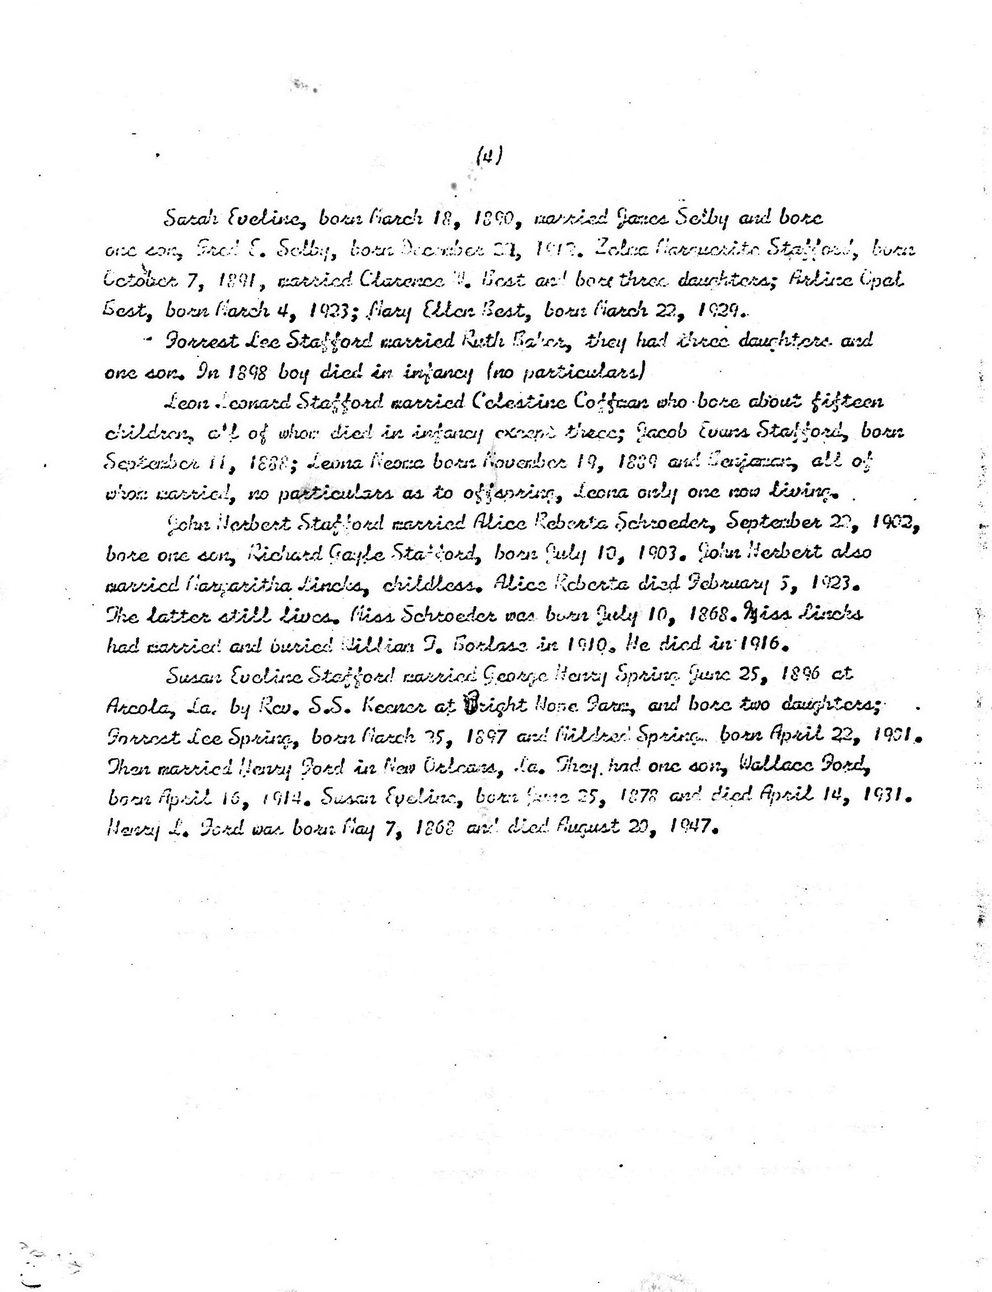 (4)
Sarah Eveline, born March 18, 1890, married James Selby and bore
one son, Fred E. Selby, born December 22, Zelma Marguerite Stafford, born
October 7, 1891, married Clarence Best and bore three daughters; Arline Opal
Best, born March 4, 1923; Mary Ellen Best, born March 22, 1929.
Forrest Lee Stafford married Ruth Baker, they had three daughters and
one son. In 1898 boy died in infancy (no particulars)
Leon Leonard Stafford married Celestine Coffman who bore about fifteen
children, all of whom died in infancy except three; Jacob Evans Stafford, born
September 11, 1888; Leona Neoma born November 19, 1889 and Benjaman, all of
whom married, no particulars as to offspring, Leona only one now living.
John Herbert Stafford married Alice Roberta Schroeder, September 22, 1902,
bore one son, Richard Gayle Stafford, born July 10, 1903. John Herbert also
married Margaritha Lincks, childless. Alice Roberta died February 5, 1923.
The latter still lives. Miss Schroeder was born July 10, 1868. Miss Lincks
had married and buried William T. Borlase in 1910. He died in 1916.
Susan Eveline Stafford married George Henry Spring June 25, 1896 at
Arcola, La. by Rev. S.S. Keener at Bright Hope Farm, and bore two daughters;
Forrest Lee Spring, born March 25, 1897 and Mildred Spring born April 22, 1901.
Then married Henry Ford in New Orleans, La. They had one son, Wallace Ford,
born April 16, 1914. Susan Eveline, born June 25, 1878 and died April 14, 1931.
Henry L. Ford was born May 7, 1868 and died August 20, 1947.